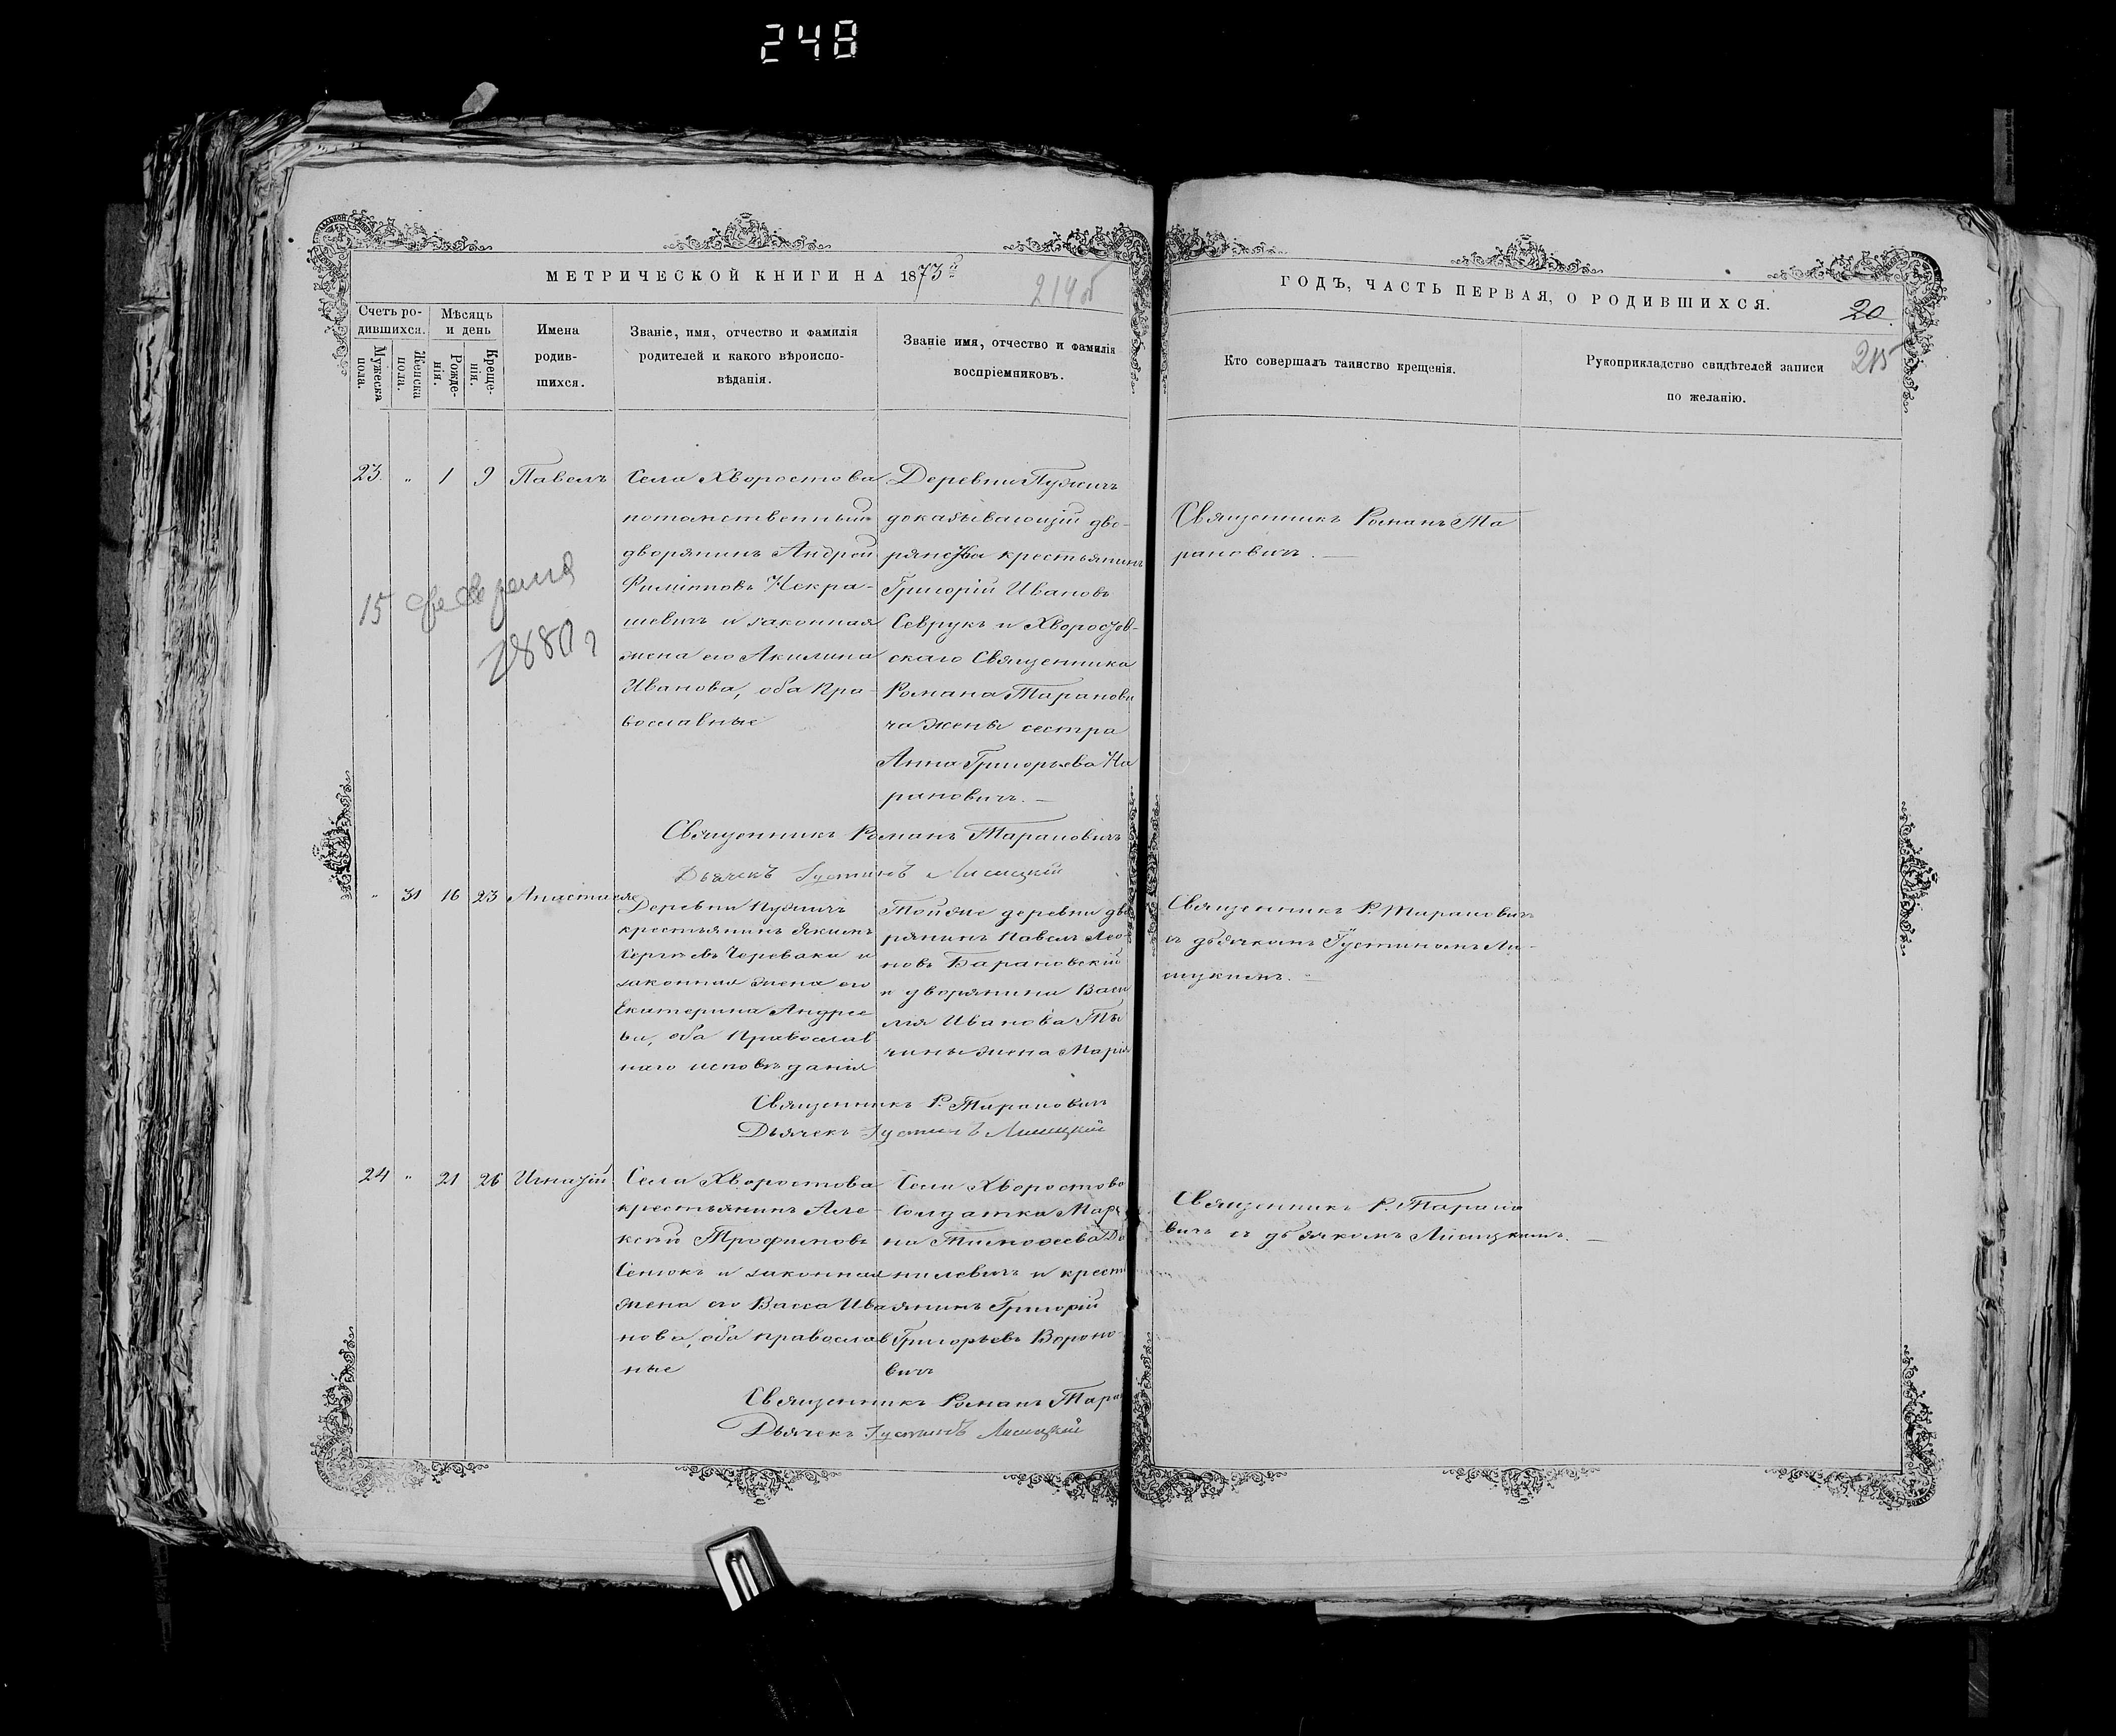 248
МЕТРИЧЕСКОЙ КНИГИ НА 1873й
214об
ГОДЪ, ЧАСТЬ ПЕРВАЯ, О РОДИВШИХСЯ.
20.
215
Счетъ ро-
дившихся.
Мужеска
пола.
Женска
пола.
Мѣсяцъ
и день
Рожде-
нія.
Креще-
нія.
Имена
родив-
шихся.
Званіе, имя, отчество и фамилія
родителей и какого вѣроиспо-
вѣданія.
Званіе имя, отчество и фамилія
воспріемниковъ.
Кто совершалъ таинство крещенія.
Рукоприкладство свидѣтелей записи
по желанію.
23. " 1 9 Павелъ
Села Хворостова
потомственный
дворянинъ Андрей
Филиповъ Некра-
шевичъ и законная
жена его Акилина
Иванова, оба Пра-
вославные
Деревни Пузичъ
доказывающій дво-
рянства крестьянинъ
Григорій Ивановъ
Севрукъ и Хворостов-
скаго Священника
Романа Таранови
ча жены сестра
Анна Григорьева На
рановичъ. —
Священникъ Романъ Та
рановичъ. —
15 февраля
1880 г
Священникъ Романъ Тарановичъ
Дьячекъ Іустинъ Лисицкій
" 31 16 23 Анастасія
Деревни Пузичъ
крестьянинъ Якимъ
Сергѣевъ Черевака и
законная жена его
Екатерина Андрее
ва, оба Православ
наго исповѣданія
Тойже деревни дво
рянинъ Павелъ Лео-
новъ Барановскій
и дворянина Васи
лія Иванова Ты
чины жена Марія
Священникъ Р. Тарановичъ
съ дьячкомъ Іустиномъ Ли-
сицкимъ. —
Священникъ Р. Тарановичъ
Дьячекъ Іустинъ Лисицкій
24 " 21 26 Игнатій
Села Хворостова
крестьянинъ Але-
ксѣй Трофимовъ
Сенюкъ и законная
жена его Васса Ива
нова, оба православ
ные
Села Хворостова
солдатка Мар
на Тимоѳеева Да
нилевичъ и крест
янинъ Григорій
Григорьевъ Вороно-
вичъ
Священникъ Р. Тарано
вичъ съ дьячкомъ Лисицкимъ. —
Священникъ Романъ Таран
Дьячекъ Іустинъ Лисицкій